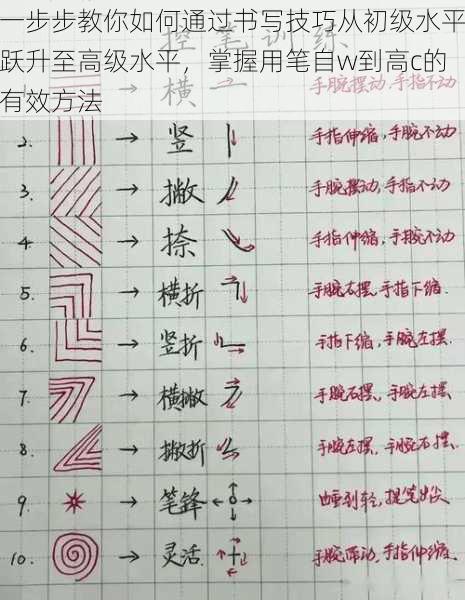 一步步教你如何通过书写技巧从初级水平
跃升至高级水平，掌握用笔自w到高c的
有效方法
控笔训练
横 手腕摆动,手指不动
2. → 竖 手指伸缩,手腕不动
3. → 撇 手腕摆动,手指不动
4. → 捺 手指伸缩,手腕不动
5. → 横折 手腕右摆,手指下缩.
6. → 竖折 手指下缩,手腕左摆.
7. → 横撇 手腕右摆、手腕左摆.
8. → 撇折 手腕左摆,手腕右摆.
9. → 笔锋 由重到轻,提笔出尖
10. → 灵活. 手腕带动,手指伸缩.